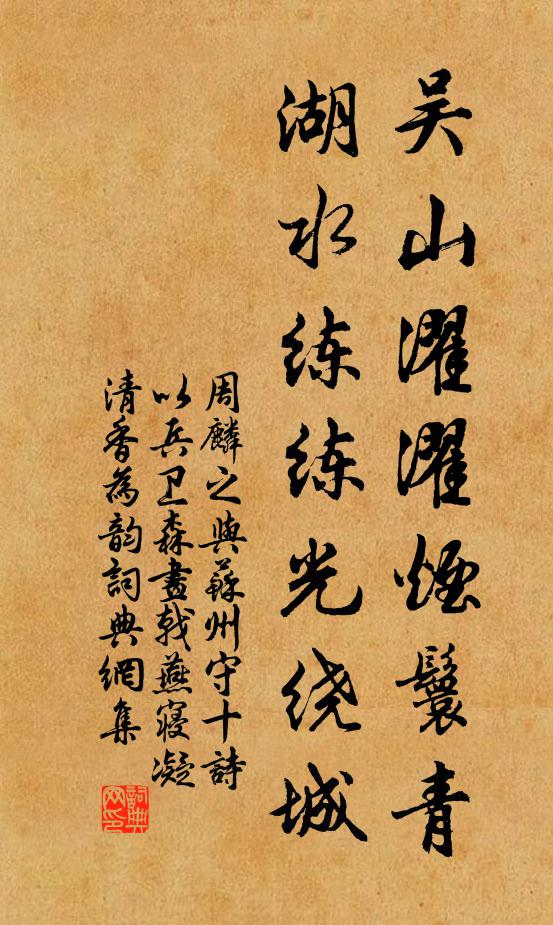 吴山濯濯煙鬟青
湖水练练光绕城
周麟之與蘇州守十詩
以兵卫森畫戟燕寝凝
清香為韵詞典網集
詞典网印